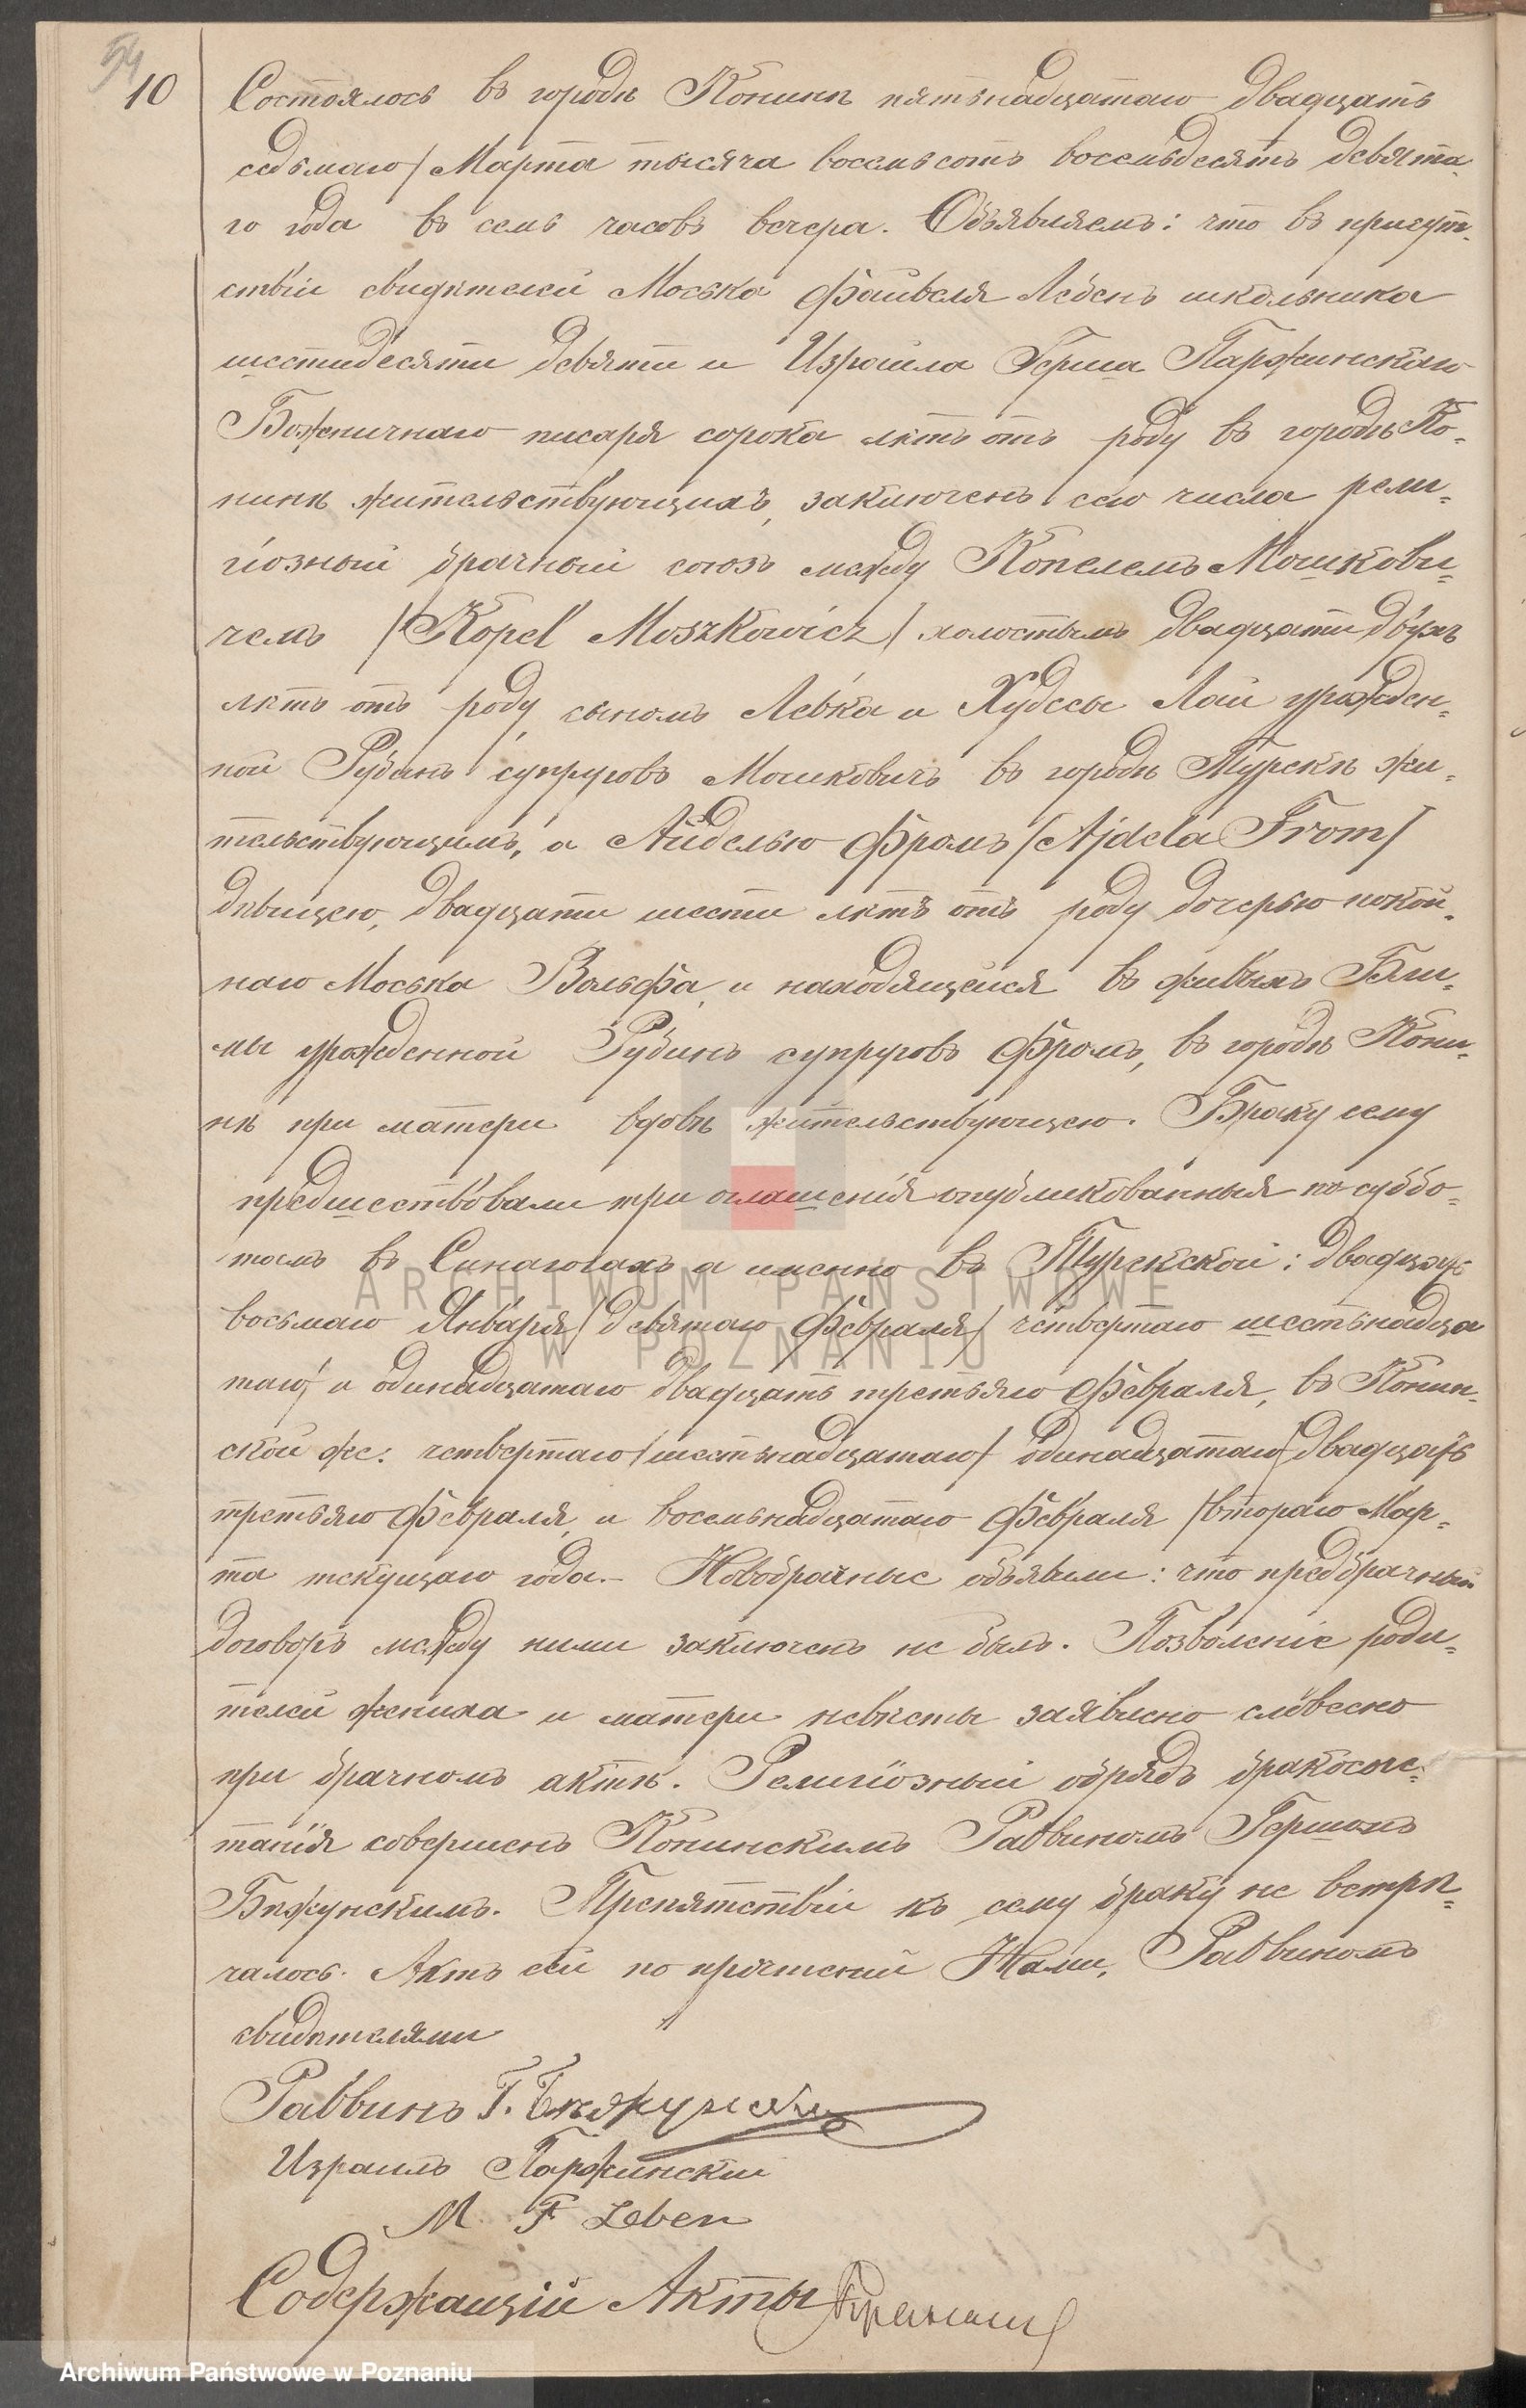 54
10
Состоялось въ городѣ Конинѣ пятьнадцатаго двадцать
седьмаго/ Марта тысяча восемьсотъ восемьдесятъ девята-
го года въ семь часовъ вечера. Объявляемъ: что въ присут-
ствіи свидѣтелей Моська Файвеля Лебенъ школьника
шестидесяти девяти и Израиля Герша Паржинскаго
Божничнаго писаря сорока лѣтъ отъ роду въ городѣ Ко-
нинѣ жительствующихъ, заключенъ сего числа рели-
гіозный брачный союзъ между Копелемъ Мошкови-
чемъ /Kopel Moszkowicz/ холостымъ двадцати двухъ
лѣтъ отъ роду, сыномъ Левка и Худесы Лаи урожден-
ной Рубинъ супруговъ Мошковичъ въ городѣ Турекѣ жи-
тельствующимъ, а Айделью Фромъ /Ajdela From/
дѣвицею, двадцати шести лѣтъ отъ роду дочерью покой-
наго Моська Вольфа, и находящейся въ живыхъ Бли-
мы урожденной Рубинъ супруговъ Фромъ, въ городѣ Кони-
нѣ при матери вдовѣ жительствующею. Браку сему
предшествовали три оглашенія опубликованныя по суббо-
тамъ въ Синагогахъ а именно въ Турекской: двадцать
восьмаго Января /девятаго Февраля/ четвертаго шестьнадца
таго/ и одинадцатаго двадцать третьяго Февраля, въ Конин-
ской же: четвертаго /шестьнадцатаго/ одинадцатаго /двадцать
третьяго Февраля, и восемьнадцатаго Февраля /втораго Мар-
та текущаго года.- Новобрачные объявили: что предбрачный
договоръ между ними заключенъ не былъ. Позволеніе роди-
телей жениха и матери невѣсты заявлено словесно
при брачномъ актѣ. Религіозный обрядъ бракосоче-
танія совершенъ Конинскимъ Раввиномъ Гершомъ
Бѣжунскимъ. Препятствіи къ сему браку не встрѣ-
чалось. Актъ сей по прочтеніи Нами, Раввиномъ
свидѣтелями
Раввинъ Г. Бѣжунскій
Израиль Паржинскій
M. F. Leben
Содержащій Акты
ARCHIWUM PAŃSTWOWE
W POZNANIU
Archiwum Państwowe w Poznaniu